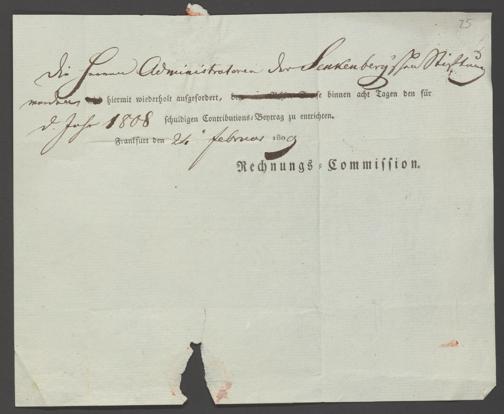 25
Die Herren Administratoren der Senkenberg'schen Stiftung
werden hiermit wiederholt aufgefordert, binnen acht Tagen den für
d. Jahr 1808 schuldigen Contributions-Beytrag zu entrichten.
Frankfurt den 24 februar 1809
Rechnungs-Commission.